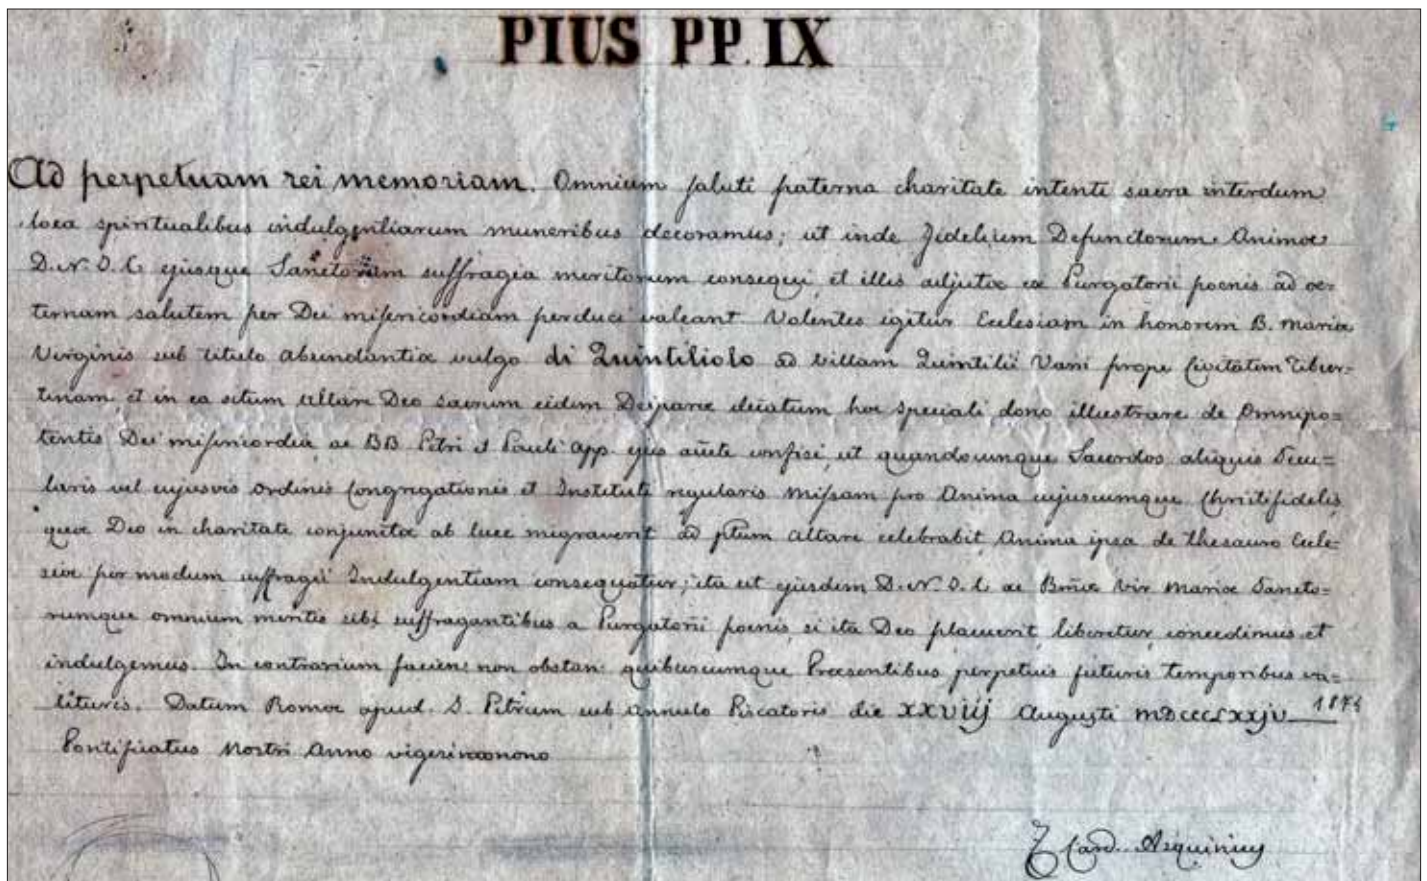 PIUS PP. IX
Ad perpetuam rei memoriam. Omnium saluti paterna charitate intenti sacra interdum
loca spiritualibus indulgentiarum muneribus decoramus; ut inde Fidelium Defunctorum Animæ
D. N. J. C. ejusque Sanctorum suffragia meritorum consequi, et illis adjutæ ex Purgatorii poenis ad æ=
ternam salutem per Dei misericordiam perduci valeant Volentes igitur Ecclesiam in honorem B. Mariæ
Virginis sub titulo abundantiæ vulgo di Quintiliolo ad villam Quintilii Varii prope Civitatem Tibur=
tinam et in ea situm altare Deo sacrum eidem Deiparæ dicatum hoc speciali dono illustrare de Omnipo=
tentis Dei misericordia, ac BB Petri et Pauli App. ejus aucte confisi, ut quandocumque Sacerdos aliquis Secu=
laris vel cujusvis ordinis Congregationis et Instituti regularis Missam pro Anima cujuscumque Christifidelis
quæ Deo in charitate conjunctæ ab luce migraverit ad ptum altare celebrabit, Anima ipsa de thesauro Eccle=
siæ per modum suffragii Indulgentiam consequatur; ita ut ejusdem D. N. J. C. ac Bmæ Vir Mariæ Sancto=
rumque omnium meritis sibi suffragantibus a Purgatorii poenis, si ita Deo placuerit, liberetur, concedimus et
indulgemus. In contrarium facien: non obstan: quibuscumque Præsentibus perpetuis futuris temporibus va=
lituris. Datum Romæ apud. S. Petrum sub Annulo Piscatoris die XXVIIJ Augusti MDCCCLXXJV 1874
Pontificatus Nostri Anno vigesimonono
Card. Asquinius